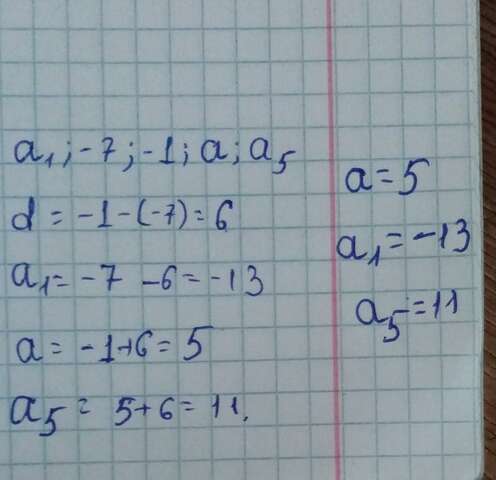 a₁; -7; -1; a; a₅
d = -1 - (-7) = 6
a₁ = -7 - 6 = -13
a = -1 + 6 = 5
a₅ = 5 + 6 = 11.
a = 5
a₁ = -13
a₅ = 11